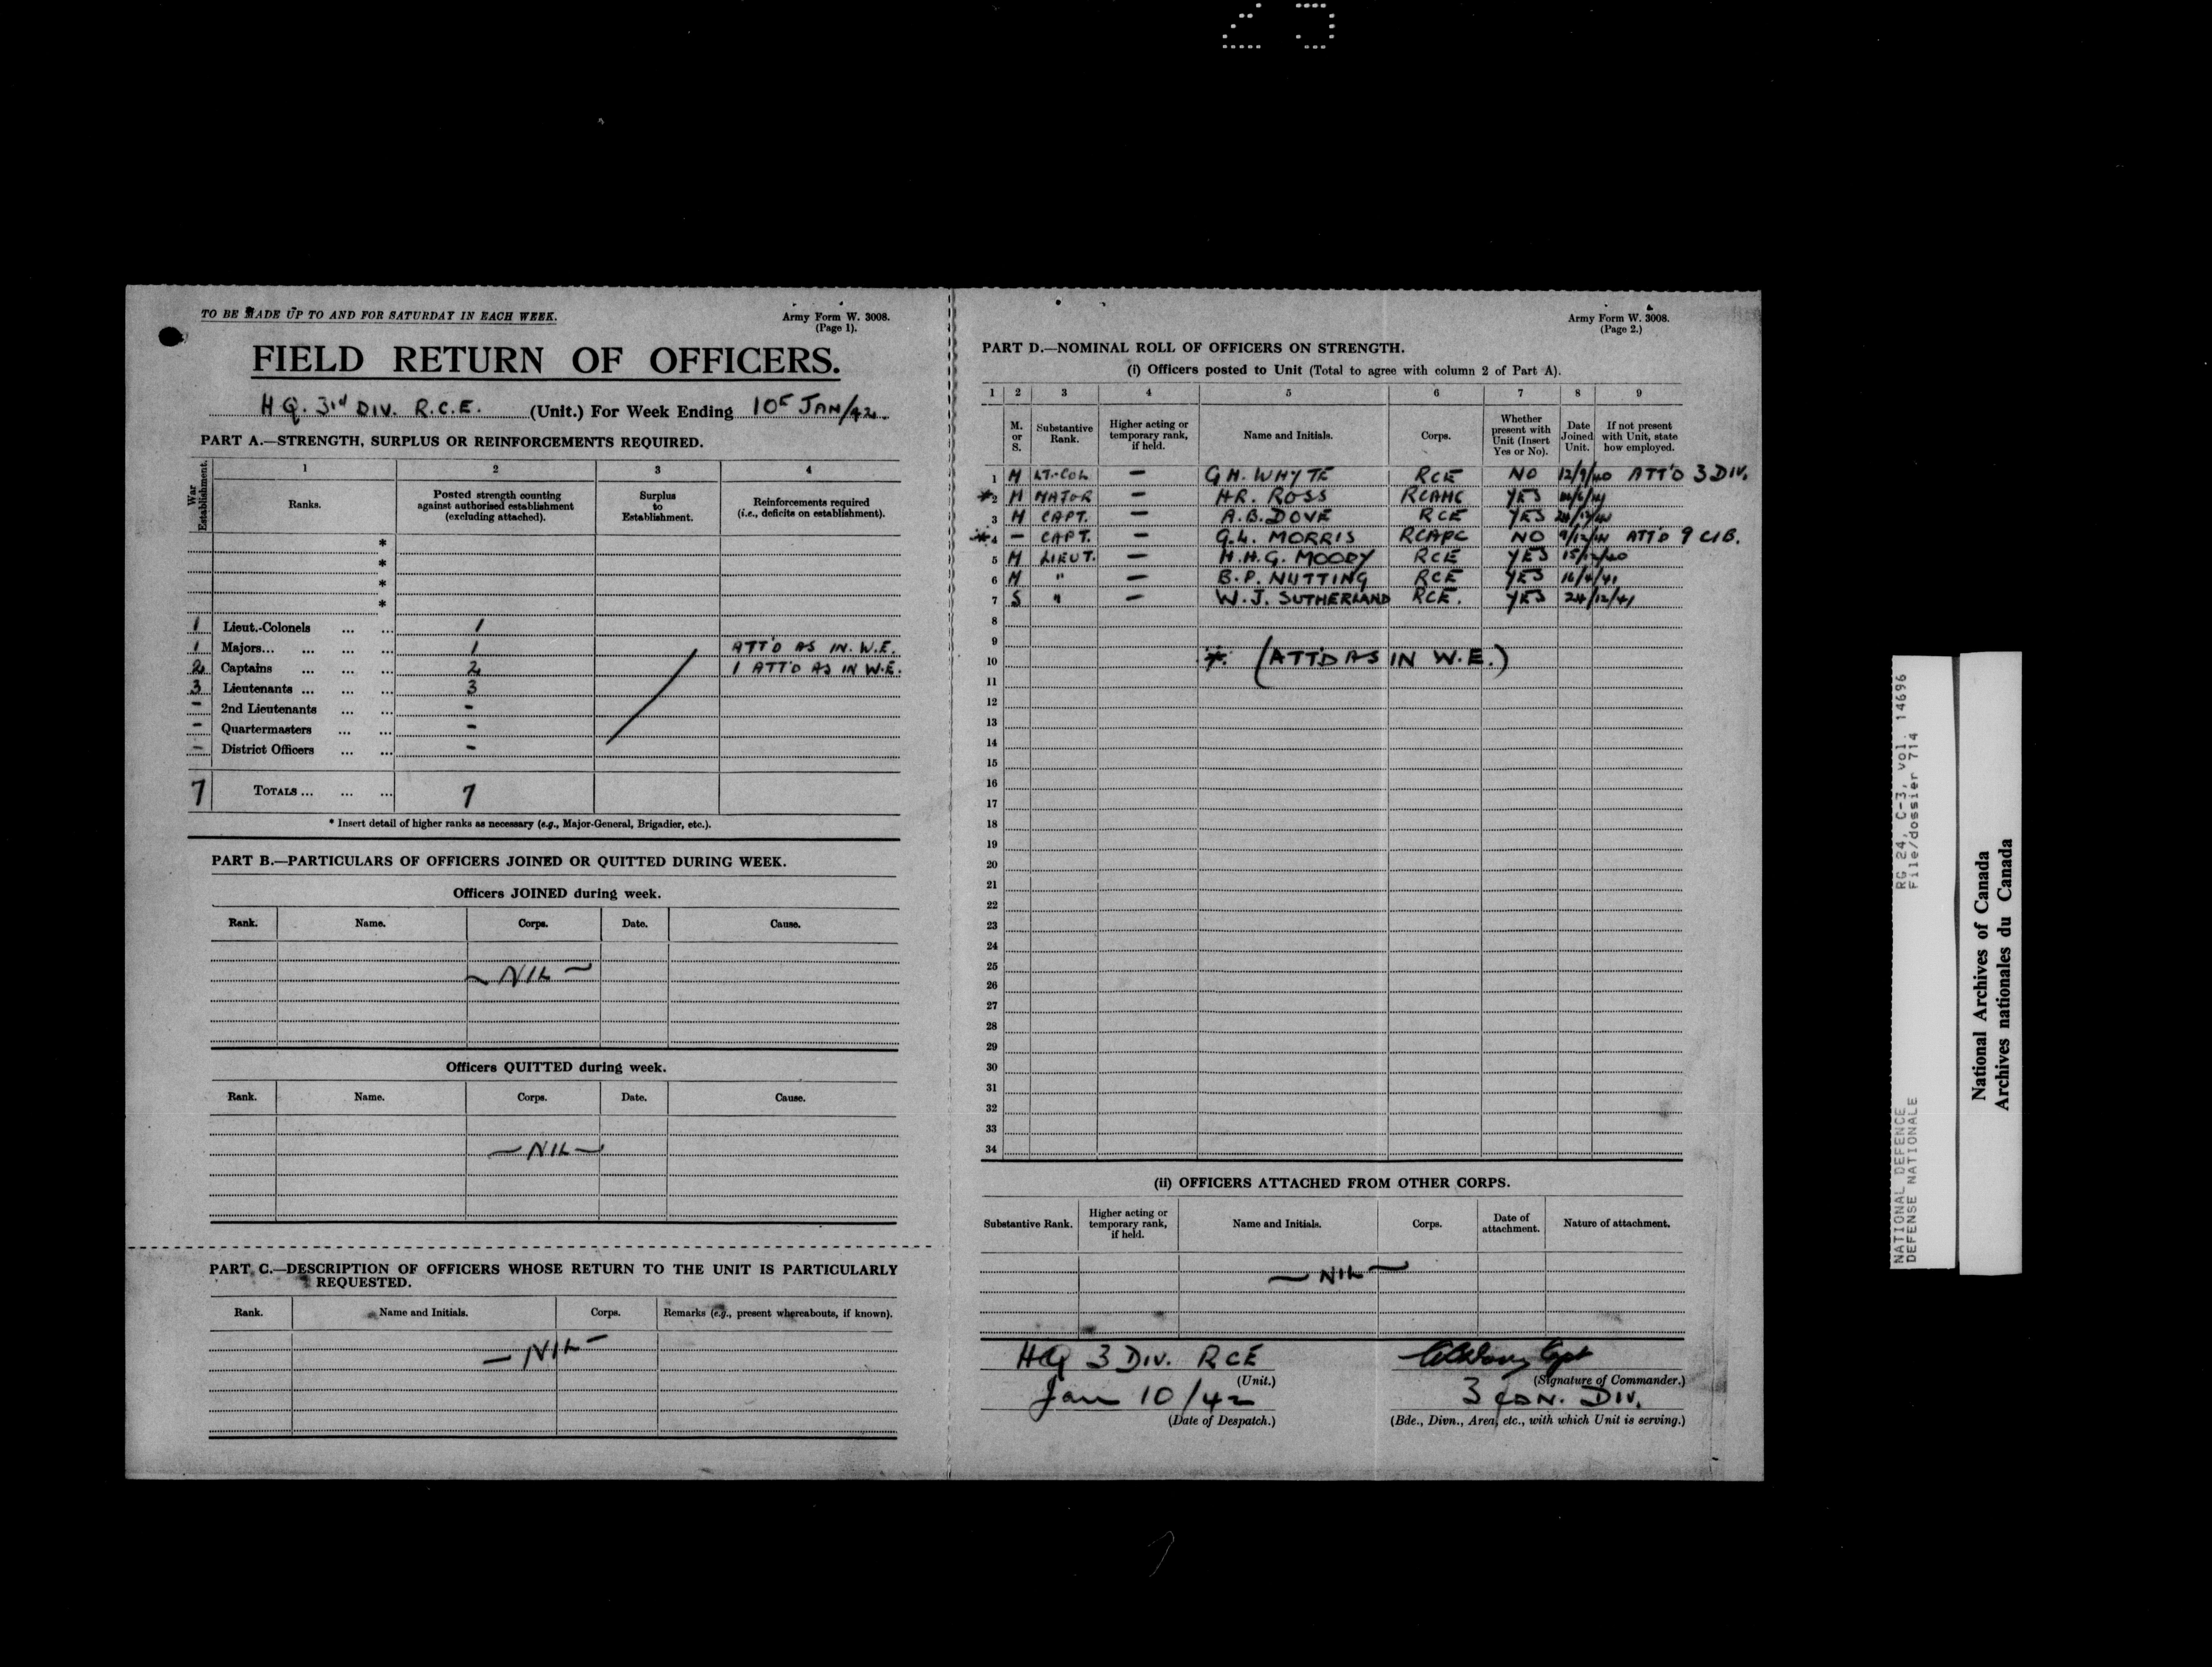 TO BE MADE UP TO AND FOR SATURDAY IN EACH WEEK.
Army Form W. 3008.
(Page 1).
FIELD RETURN OF OFFICERS.
HQ. 3rd DIV. R.C.E. (Unit.) For Week Ending 10th JAN/42
PART A.—STRENGTH, SURPLUS OR REINFORCEMENTS REQUIRED.
War Establishment.
1 2 3 4
Ranks.
Posted strength counting against authorised establishment (excluding attached).
Surplus to Establishment.
Reinforcements required (i.e., deficits on establishment).
*
*
*
*
1 Lieut.-Colonels ... ... 1
1 Majors... ... ... ... 1 ATT'D AS IN. W.E.
2 Captains ... ... ... 2 1 ATT'D AS IN W.E.
3 Lieutenants ... ... ... 3
- 2nd Lieutenants ... ... -
- Quartermasters ... ... -
- District Officers ... ... -
7 TOTALS ... ... ... 7
* Insert detail of higher ranks as necessary (e.g., Major-General, Brigadier, etc.).
PART B.—PARTICULARS OF OFFICERS JOINED OR QUITTED DURING WEEK.
Officers JOINED during week.
Rank. Name. Corps. Date. Cause.
— NIL —
Officers QUITTED during week.
Rank. Name. Corps. Date. Cause.
— NIL —
PART C.—DESCRIPTION OF OFFICERS WHOSE RETURN TO THE UNIT IS PARTICULARLY
REQUESTED.
Rank. Name and Initials. Corps. Remarks (e.g., present whereabouts, if known).
— NIL —
Army Form W. 3008.
(Page 2.)
PART D.—NOMINAL ROLL OF OFFICERS ON STRENGTH.
(i) Officers posted to Unit (Total to agree with column 2 of Part A).
1 2 3 4 5 6 7 8 9
M. or S.
Substantive Rank.
Higher acting or temporary rank, if held.
Name and Initials.
Corps.
Whether present with Unit (Insert Yes or No).
Date Joined Unit.
If not present with Unit, state how employed.
1 M LT.-COL — G.H. WHYTE RCE NO 12/9/40 ATT'D 3 DIV.
*2 M MAJOR — H.R. ROSS RCAMC YES
3 M CAPT. — A.B. DOVE RCE YES
*4 — CAPT. — G.L. MORRIS RCAPC NO 9/12/41 ATT'D 9 CIB.
5 M LIEUT. — H.H.G. MOODY RCE YES 15/12/40
6 M " — B.P. NUTTING RCE YES 16/4/41
7 S " — W.J. SUTHERLAND RCE. YES 24/12/41
8
9
10 * (ATT'D AS IN W.E.)
11
12
13
14
15
16
17
18
19
20
21
22
23
24
25
26
27
28
29
30
31
32
33
34
(ii) OFFICERS ATTACHED FROM OTHER CORPS.
Substantive Rank. Higher acting or temporary rank, if held. Name and Initials. Corps. Date of attachment. Nature of attachment.
— NIL —
HQ 3 DIV. RCE
(Unit.)
Capt
(Signature of Commander.)
Jan 10/42
(Date of Despatch.)
3 CDN. DIV.
(Bde., Divn., Area, etc., with which Unit is serving.)
NATIONAL DEFENCE RG 24, C-3, vol. 14696
DEFENSE NATIONALE File/dossier 714
National Archives of Canada
Archives nationales du Canada